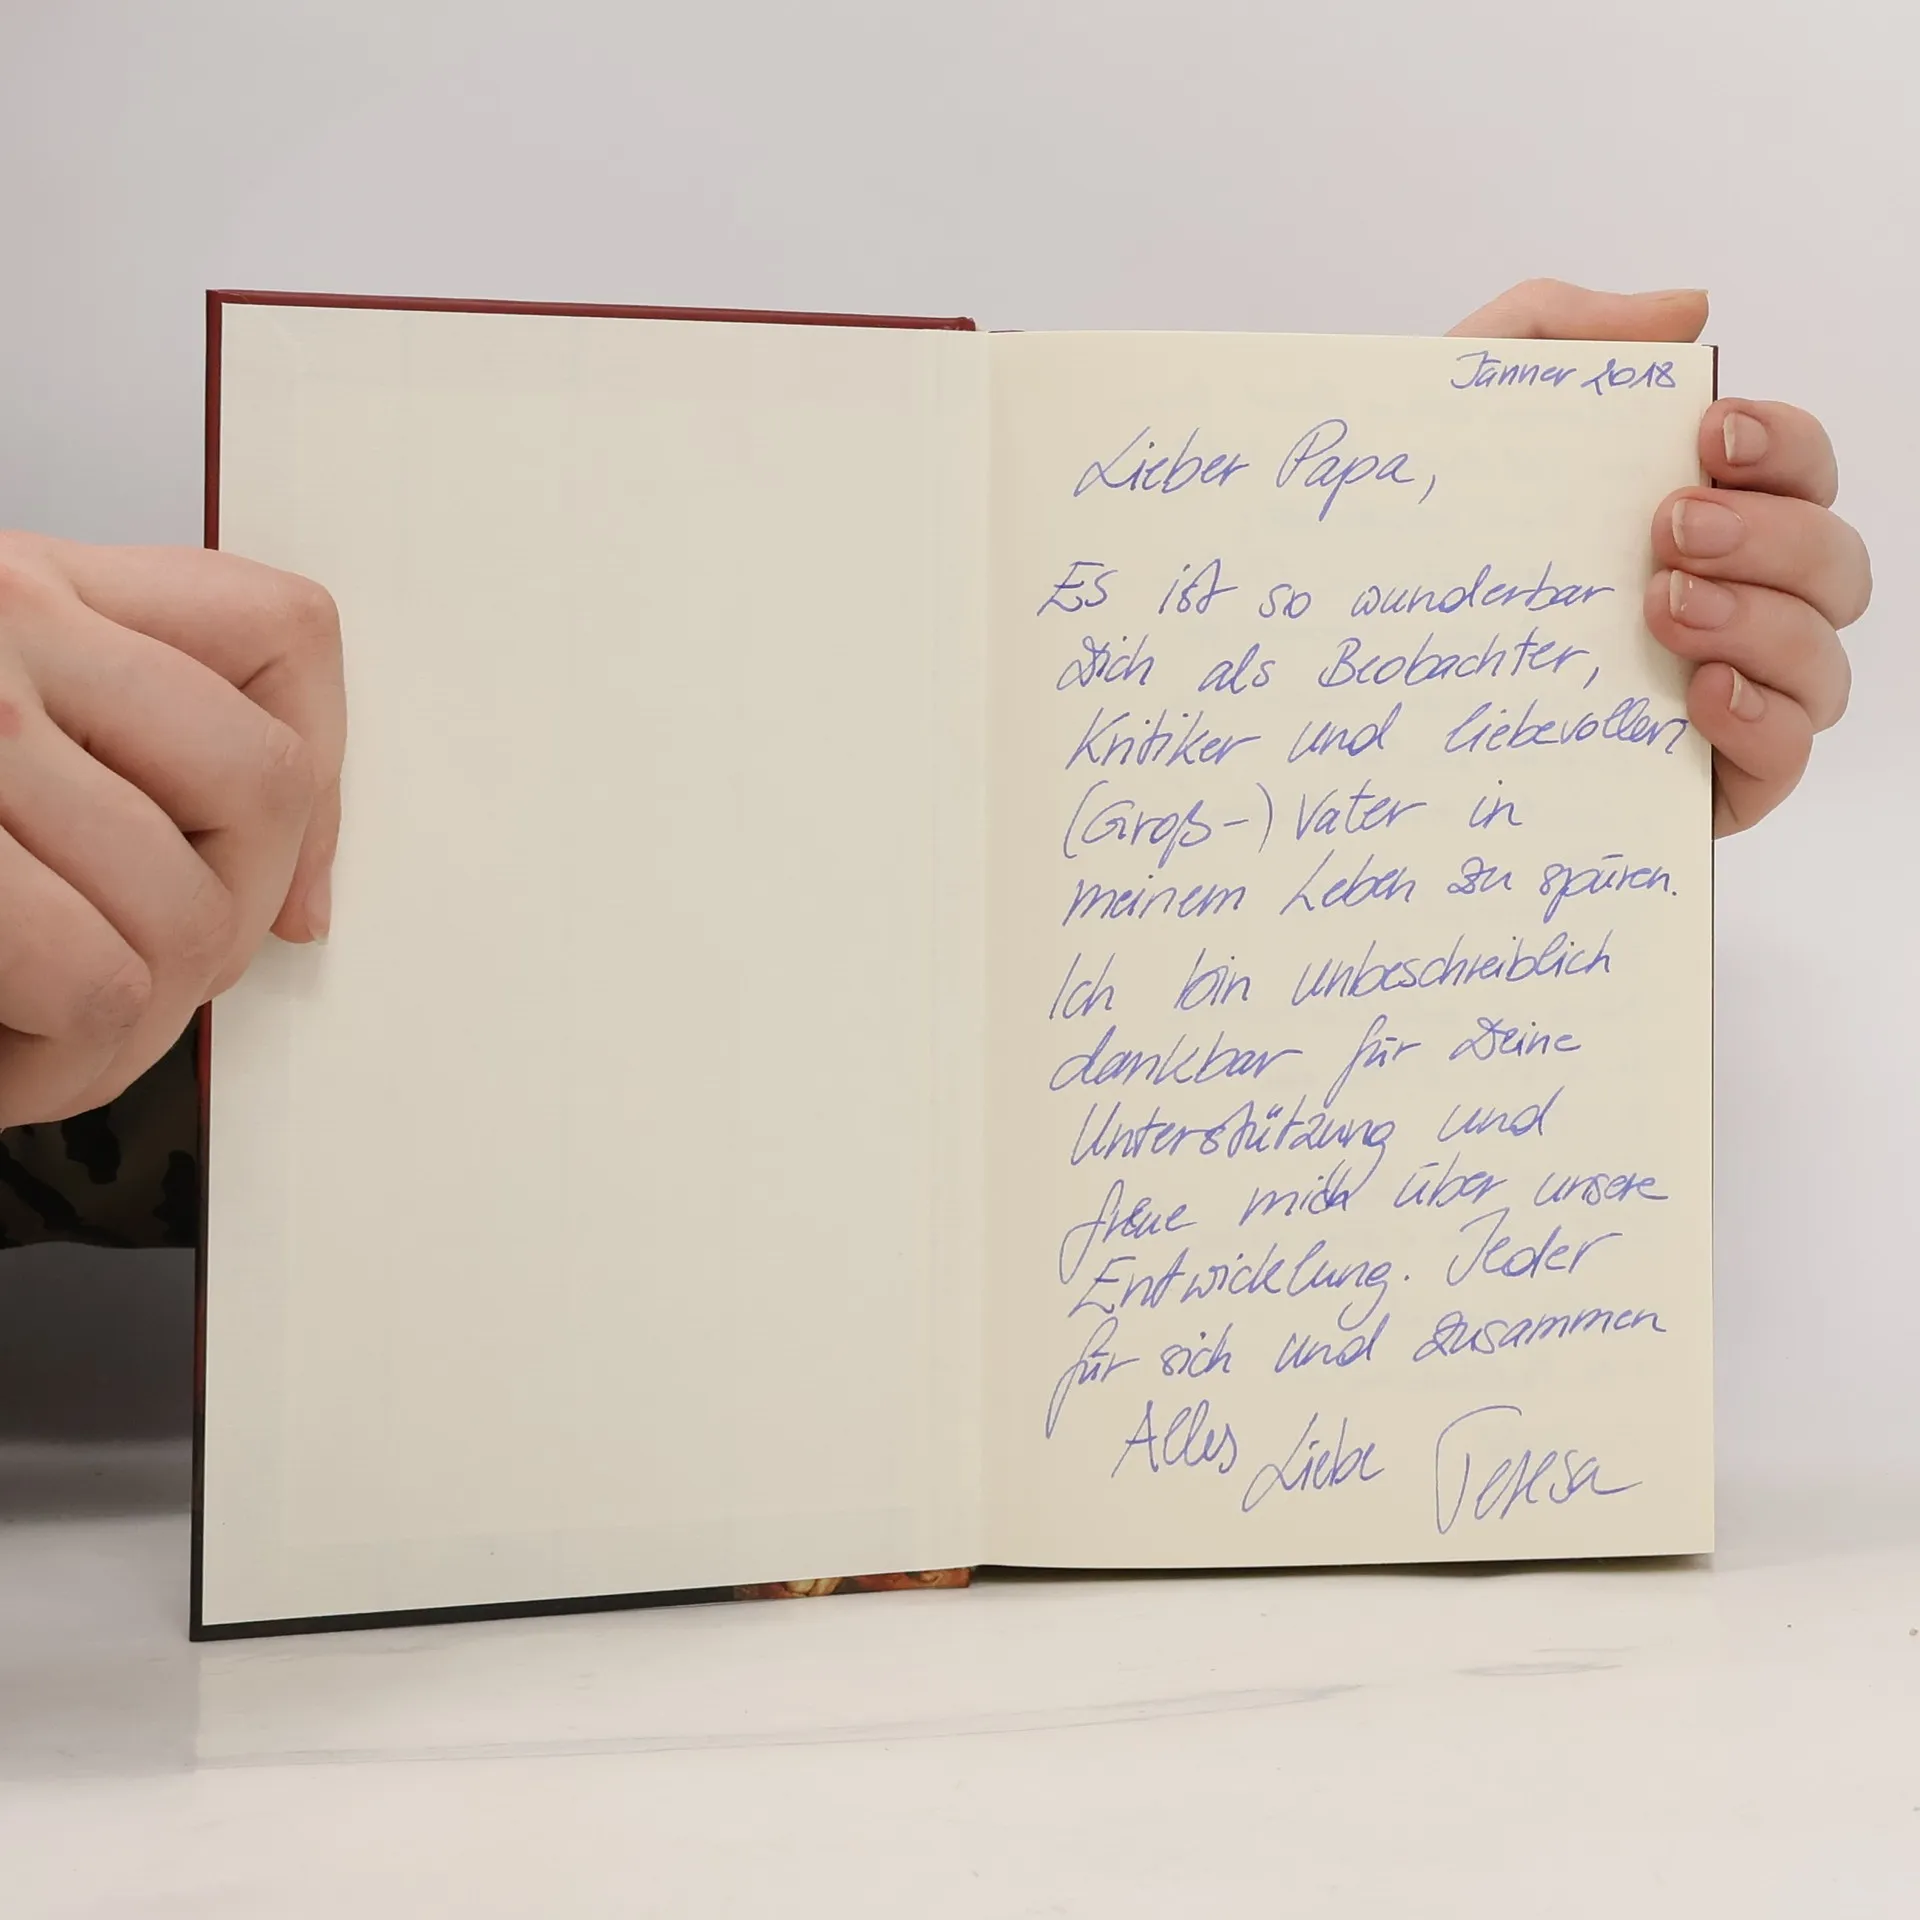 Jänner 2018
Lieber Papa,
Es ist so wunderbar
Dich als Beobachter,
Kritiker und liebevollen
(Groß-) Vater in
meinem Leben zu spüren.
Ich bin unbeschreiblich
dankbar für Deine
Unterstützung und
freue mich über unsere
Entwicklung. Jeder
für sich und zusammen
Alles Liebe Teresa